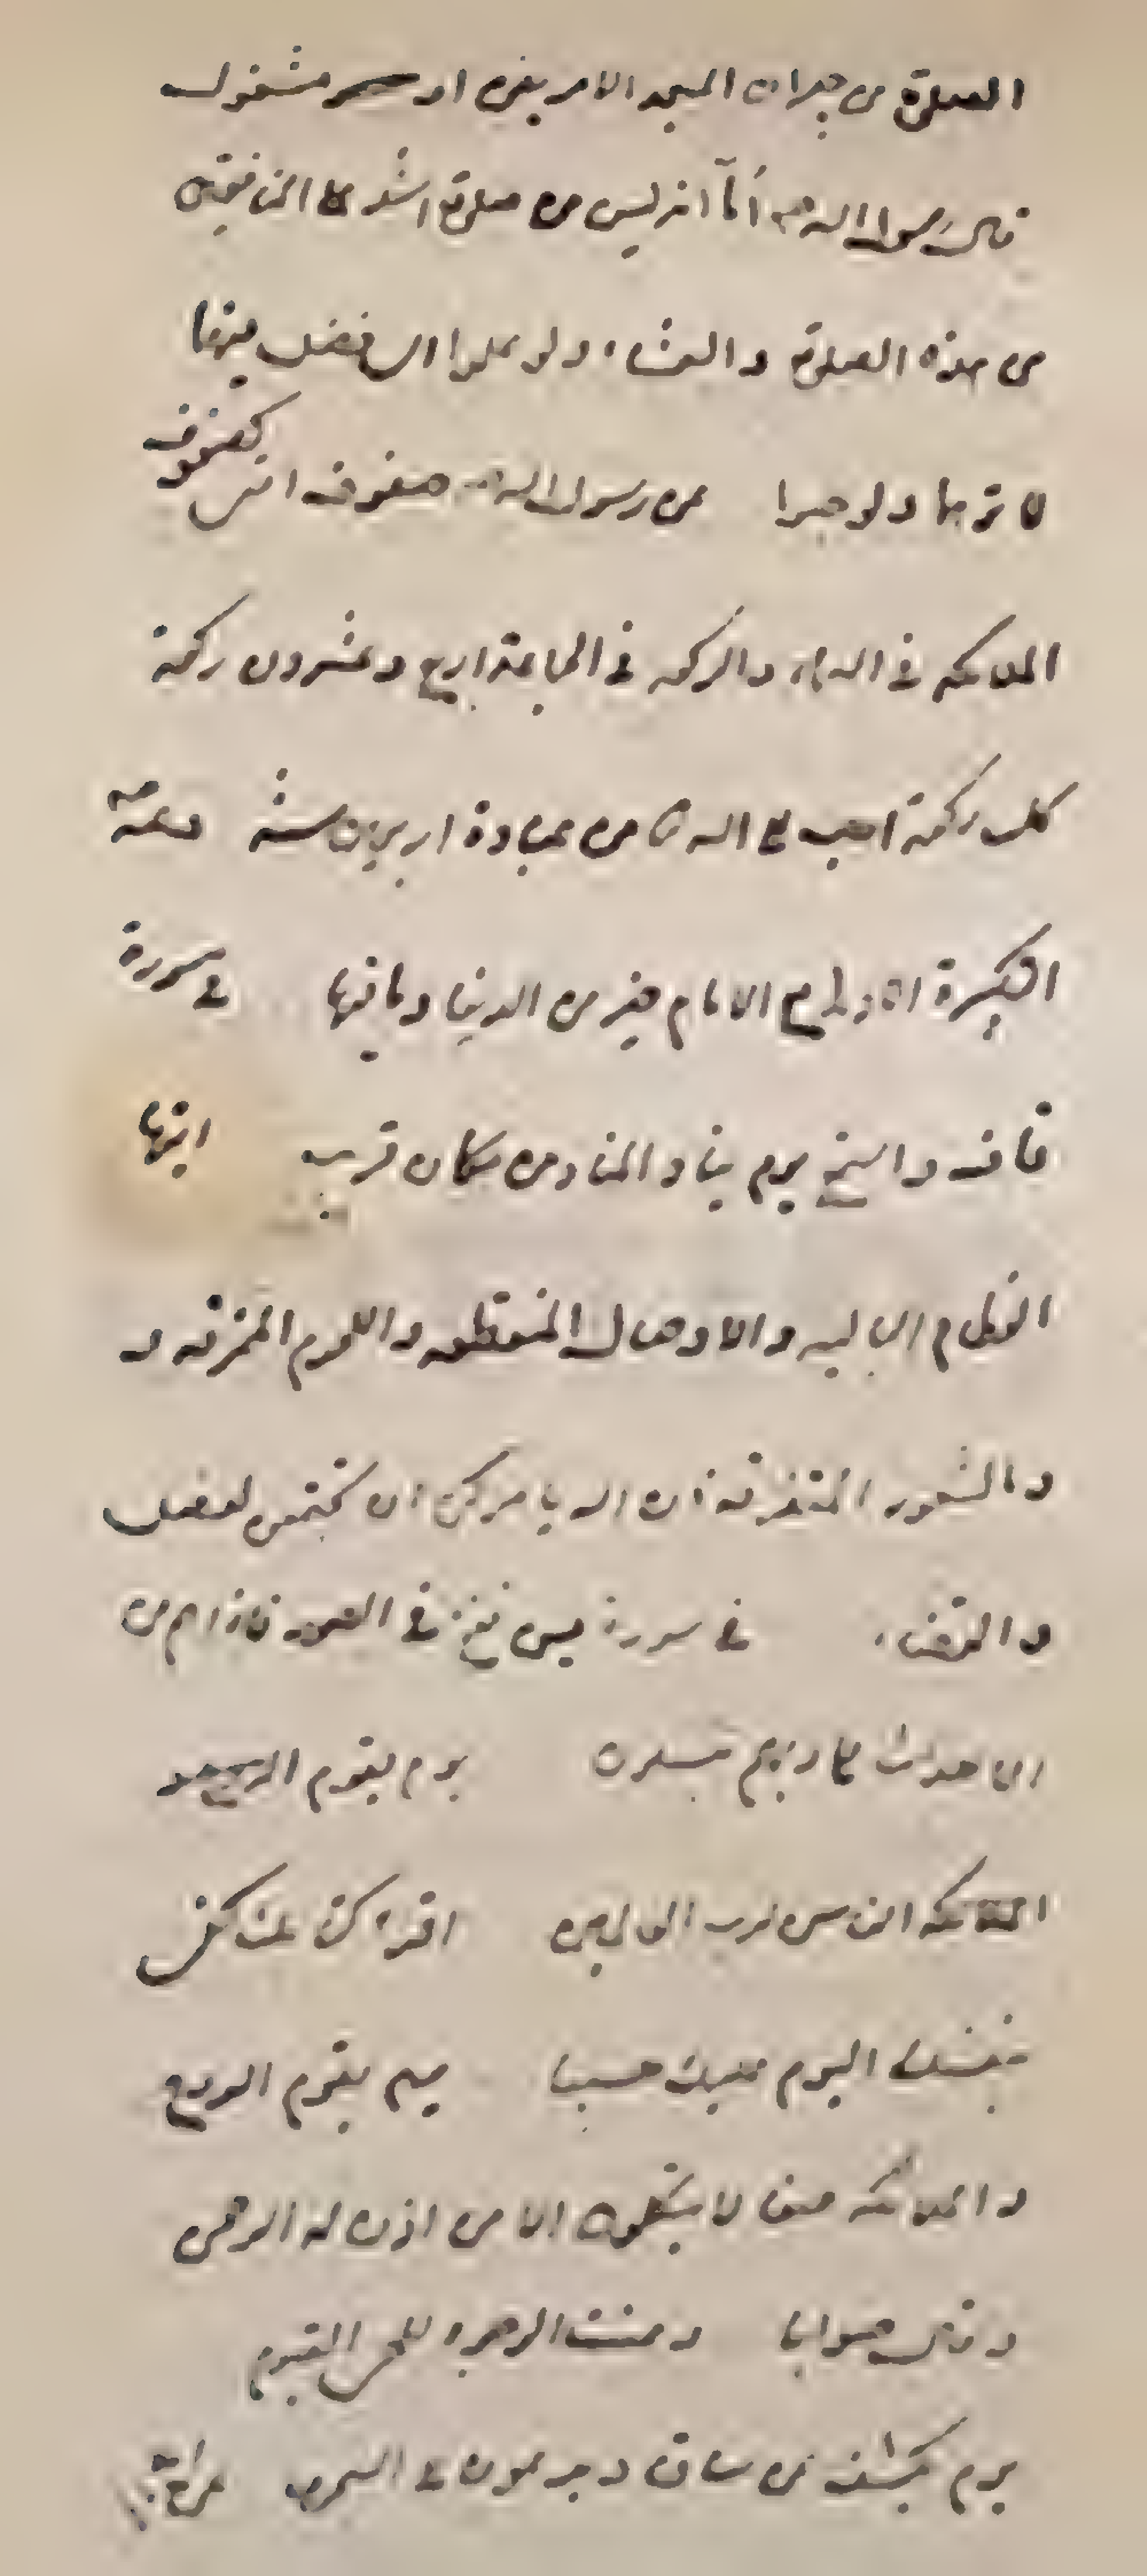 الصلوة من جيران المسجد الا مريض او مشغول
قال رسول الله ص أمآ انه ليس من صلوة اشد على المنافقين
من هذه الصلوة والعشاء ولو علموا اى فضل فيها
لا توها ولو حبوا عن رسول الله صفوف امتى كصفوف
الملائكه فى السماء والركعه فى الجماعة اربع وعشرون ركعة
كل ركعة احب الى الله من عبادة اربعين سنة وعنه
التكبيرة مع الامام خير من الدنيا ومافيها فى سورة
ق واستمع يوم يناد المناد من مكان قريب ايتها
العظام الباليه والاوصال المنقطعه واللحوم المتمزقه و
والشعور المتفرقه ان الله يامركن ان تجتمعن لفصل
والقضاء فى سورة يس نفخ فى الصور فاذا هم من
الاجداث الى ربهم ينسلون يوم يقوم
الناس لرب العالمين اقرء كتابك كفى
بنفسك اليوم عليك حسيبا يوم يقوم الروح
والملائكه صفا لا يتكلمون الا من اذن له الرحمن
وقال صوابا وعنت الوجوه للحى القيوم
يوم يكشف عن ساق ويدعون الى السجود